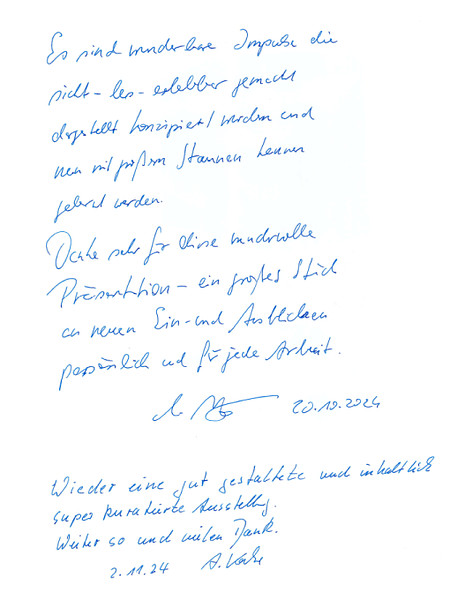 Es sind wunderbare Impulse die
sicht - les - erlebbar gemacht
dargestellt konzipiert wurden und
nun mit großem Staunen kennen
gelernt werden.
Danke sehr für diese wundervolle
Präsentation – ein großes Stück
an neuen Ein- und Ausblicken
persönlich und für jede Arbeit.
20.10.2024
Wieder eine gut gestaltete und inhaltlich
super kuratierte Ausstellung.
Weiter so und vielen Dank.
2.11.24 A.